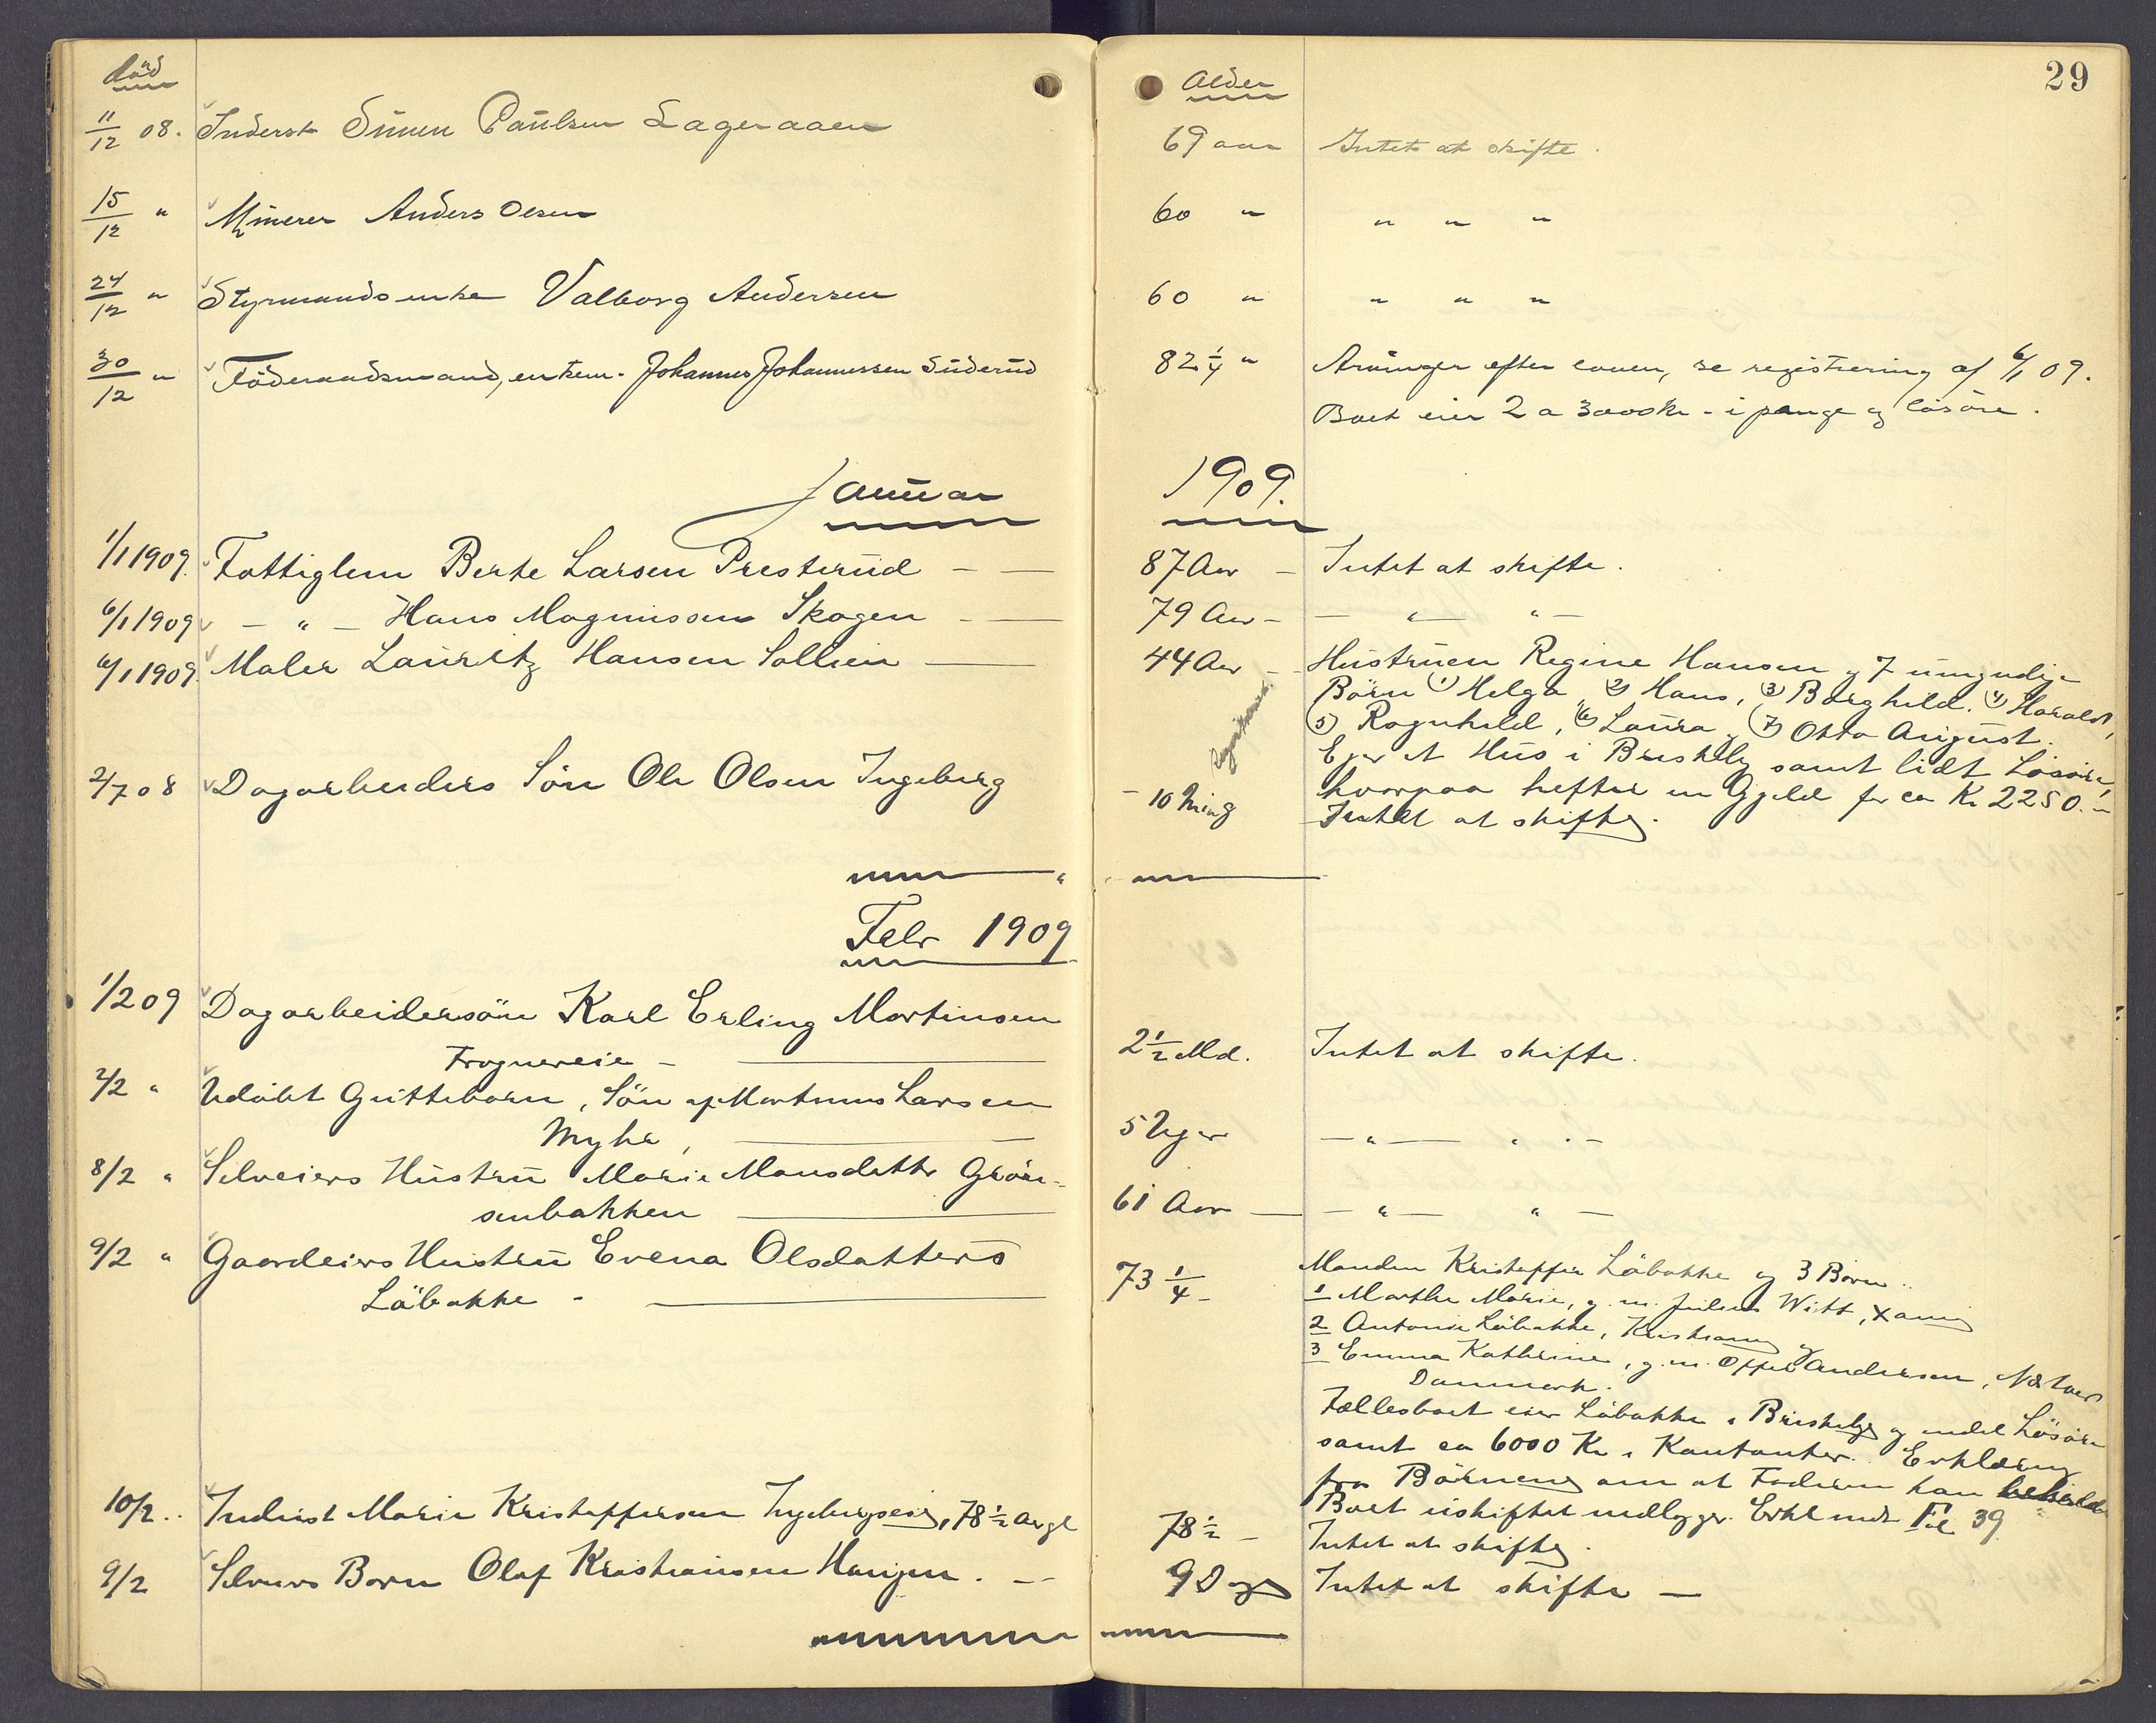 død
Alder
29
11/12 08. Inderst Simen Paulsen Lageraaen 69 aar Intet at skifte.
15/12 " Minerer Anders Olsen 60 " " " "
24/12 " Styrmandsenke Valborg Andersen 60 " " " "
30/12 " Föderaadsmand, enkem. Johannes Johannessen Süderüd 82 1/4 " Arvinger efter loven, se registrering af 6/1 09.
Boet eier 2 a 3000 kr - i penge og løsøre.
Januar 1909.
1/1 1909. Fattiglem Berte Larsen Presterüd - - 87 Aar - Intet at skifte.
6/1 1909 - " - Hans Magnussen Skogen - - 79 Aar - - " - " -
6/1 1909. Maler Lauritz Hansen Sollien - 44 Aar - Hustruen Regine Hansen og 7 umyndige
Børn (1) Helga, (2) Hans, (3) Borghild. (4) Harald,
(5) Ragnhild, (6) Laura, (7) Otto August.
Registreres.
Ejer et Hüs i Brüskeby samt lidt Løsøre,
hvorpaa hefter en Gjæld for ca Kr 2250.-
2/7 08 Dagarbeiders Søn Ole Olsen Ingeberg - 10 Intet at skifte.
Febr 1909
1/2 09 Dagarbeidersøn Karl Erling Martinsen
Frognereie - 2 1/2 Md. Intet at skifte.
2/2 " Udøbt Guttebarn, Søn af Martinus Larsen
Myhre, 5 Uger - " - " -
8/2 " Selveiers Hüstrü Marie Monsdatter Grøn-
senbakken 61 Aar - - " - " -
9/2 " Gaardeiers Hustrü Evena Olsdatter
Løbakke - 73 1/4 - Manden Kristoffer Løbakke og 3 Børn.
1 Marthe Marie, g. m. Julius Witt, Xania
2 Antonie Løbakke, Kristiania og
3 Emma Kathrine, g. m. Andersen,
Danmark.
Fællesboet eier Løbakke i Brüskeby og endel Løsøre
samt ca 6000 Kr i Kontanter. Erklæring
fra Børnene om at Faderen kan beholde
Boet uskiftet vedlægger. Erkl. Fol 39
10/2 .. Inderst Marie Kristoffersen Ingebergseie, 78 1/2 Aar gl 78 1/2 - Intet at skifte.
9/2 Selveiers Barn Olaf Kristiansen Haugen. - 9 Dage Intet at skifte -